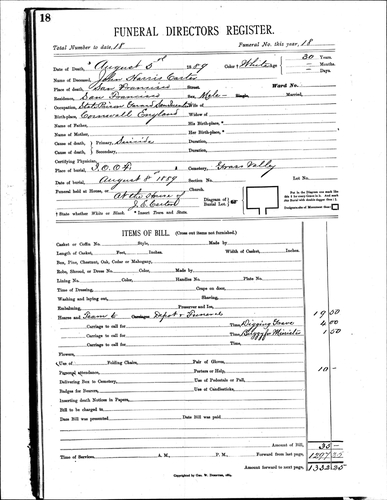 18
FUNERAL DIRECTORS REGISTER.
Total Number to date, 18 Funeral No. this year, 18
Date of Death, * August 5th 1889 Color † White Age 30 Years
— Months
— Days.
Name of Deceased, John Harris Carter
Place of death, San Francisco Ward No.
Residence, San Francisco Sex, Male Single, Married,
Occupation, State Prison Wife of
Birthplace, Cornwall England Widow of
Name of Father, His Birthplace, *
Name of Mother, Her Birthplace, *
Cause of death, Primary, Suicide
Cause of death, Secondary, Duration,
Certifying Physician,
Place of burial, I.O.O.F. Cemetery, Grass Valley
Date of burial, August 8th 1889 Section No. Lot No.
Funeral held at House, or At the House of Church.
J.C. Carter Diagram of Burial Lot,
Put in the Diagram over mark
† State whether White or Black. * Insert Town and State.
ITEMS OF BILL. (Cross out items not furnished.)
Casket or Coffin No. Style, Made by
Length of Casket, Feet, Inches. Width of Casket, Inches.
Box, Pine, Chestnut, Oak, Cedar or Mahogany,
Robe, Shroud, or Dress No. Color, Made by
Lining No. Color, Handles No. Plate No.
Time of Dressing, Crape on door,
Washing and laying out, Shaving,
Embalming, Preserver and Ice,
Hearse and Team to Carriages Depot & Funeral 19 50
Carriage to call for Time, Digging Grave 4 00
Carriage to call for Time, Buggy for Minister 1 50
Carriage to call for Time,
Flowers,
Use of Folding Chairs, Pair of Gloves,
Personal attendance, Porters or Help, 10 —
Delivering Box to Cemetery, Use of Pedestals or Pall,
Badges for Bearers, Use of Candlesticks,
Inserting death Notices in Papers,
Bill to be charged to
Date Bill was presented Date Bill was paid
Amount of Bill, 35 —
Time of Services, A. M., P. M. Forward from last page, 1297 25
Amount forward to next page, 1332 25